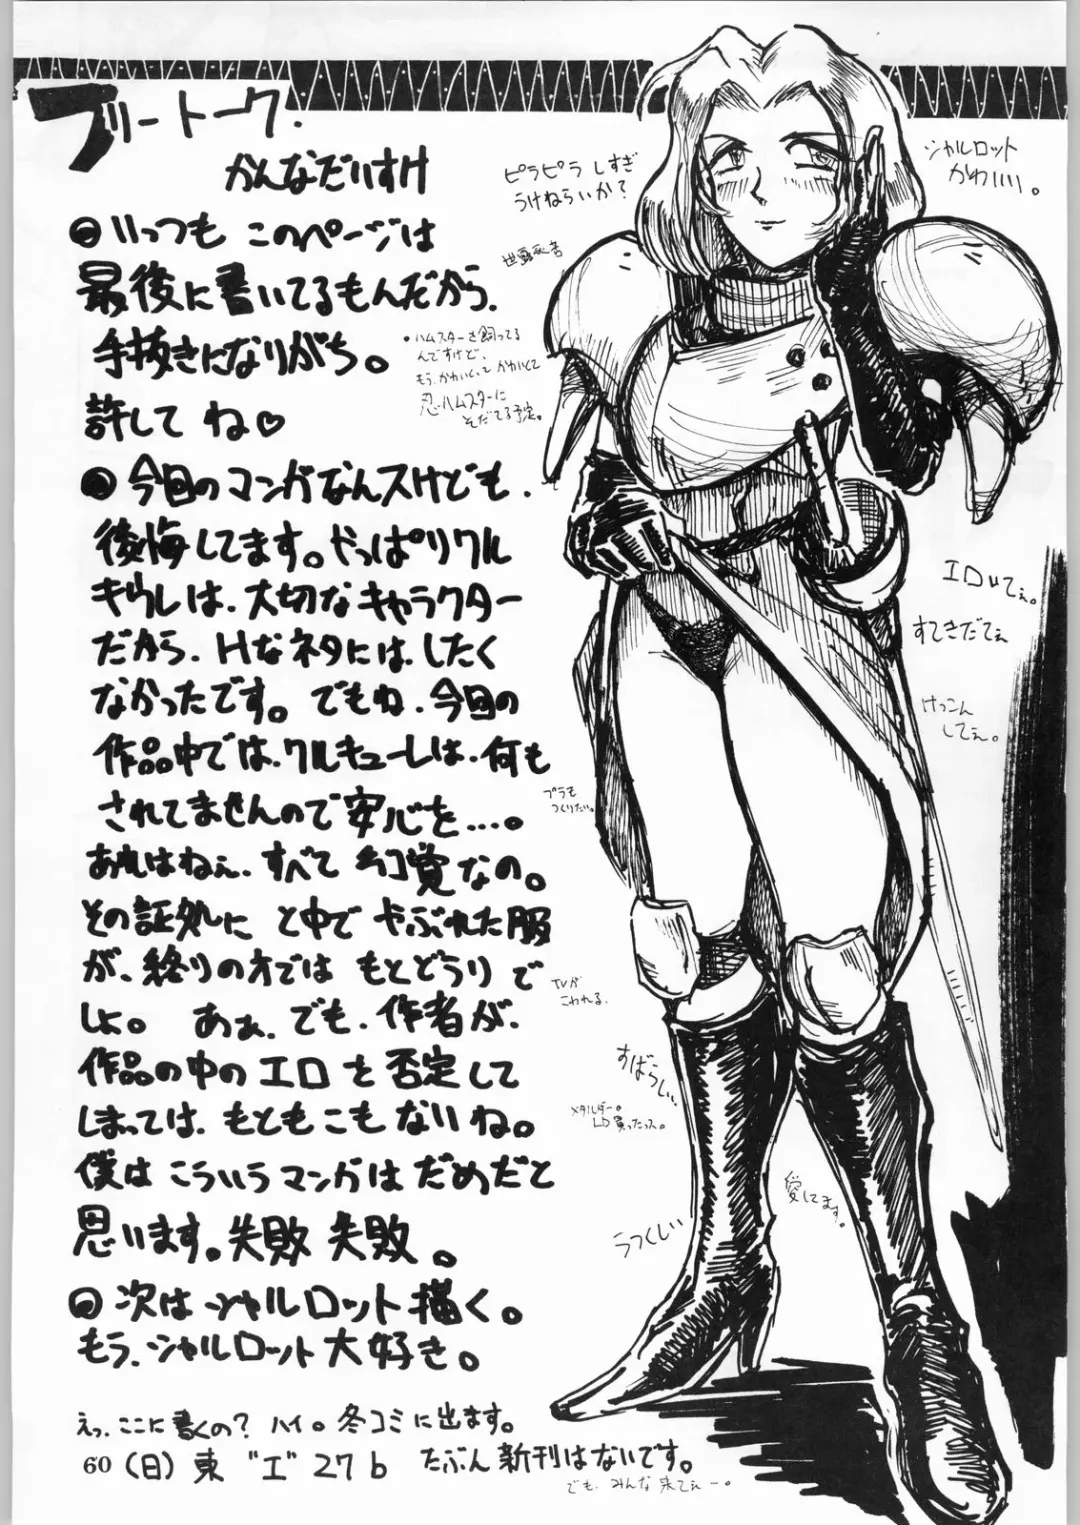 フリートーク.
かんなだいすけ
◎いつも このページは
最後に書いてるもんだから、
手抜きになりがち。
許してね♡
◎今回のマンガなんスけども、
後悔してます。やっぱりクル
キゥレは、大切なキャラクター
だから、Hなネタには、したく
なかったです。でもね、今回の
作品中では、クルキューレは、何も
されてませんので安心を…。
あれはねぇ、すべて幻覚なの。
その証処に と中で やぶれた服
が、終りの方では もとどうりで
しょ。 あぁ、でも、作者が、
作品の中のエロを否定して
しまっては、もともこもないね。
僕は こういうマンガは だめだと
思います。失敗 失敗。
◎次は シャルロット描く。
もう、シャルロット大好き。
えっ、ここに書くの? ハイ。冬コミに出ます。
60 (日) 東 "エ" 27b たぶん新刊はないです。
でも、みんな来てぇー。
ピラピラ しすぎ
うけねらいか?
シャルロット
かわいい。
・ハムスターを飼ってる
んですけど、
もう、かわいくって かわいくって
忍ハムスターに
そだてる予定。
エロいてぇ。
すてきだてぇ
けっこん
してぇ。
プラも
つくりたい。
TVが
こわれる。
すばらしい。
メタルダー。
LD買ったっス。
愛してます。
うつくしい